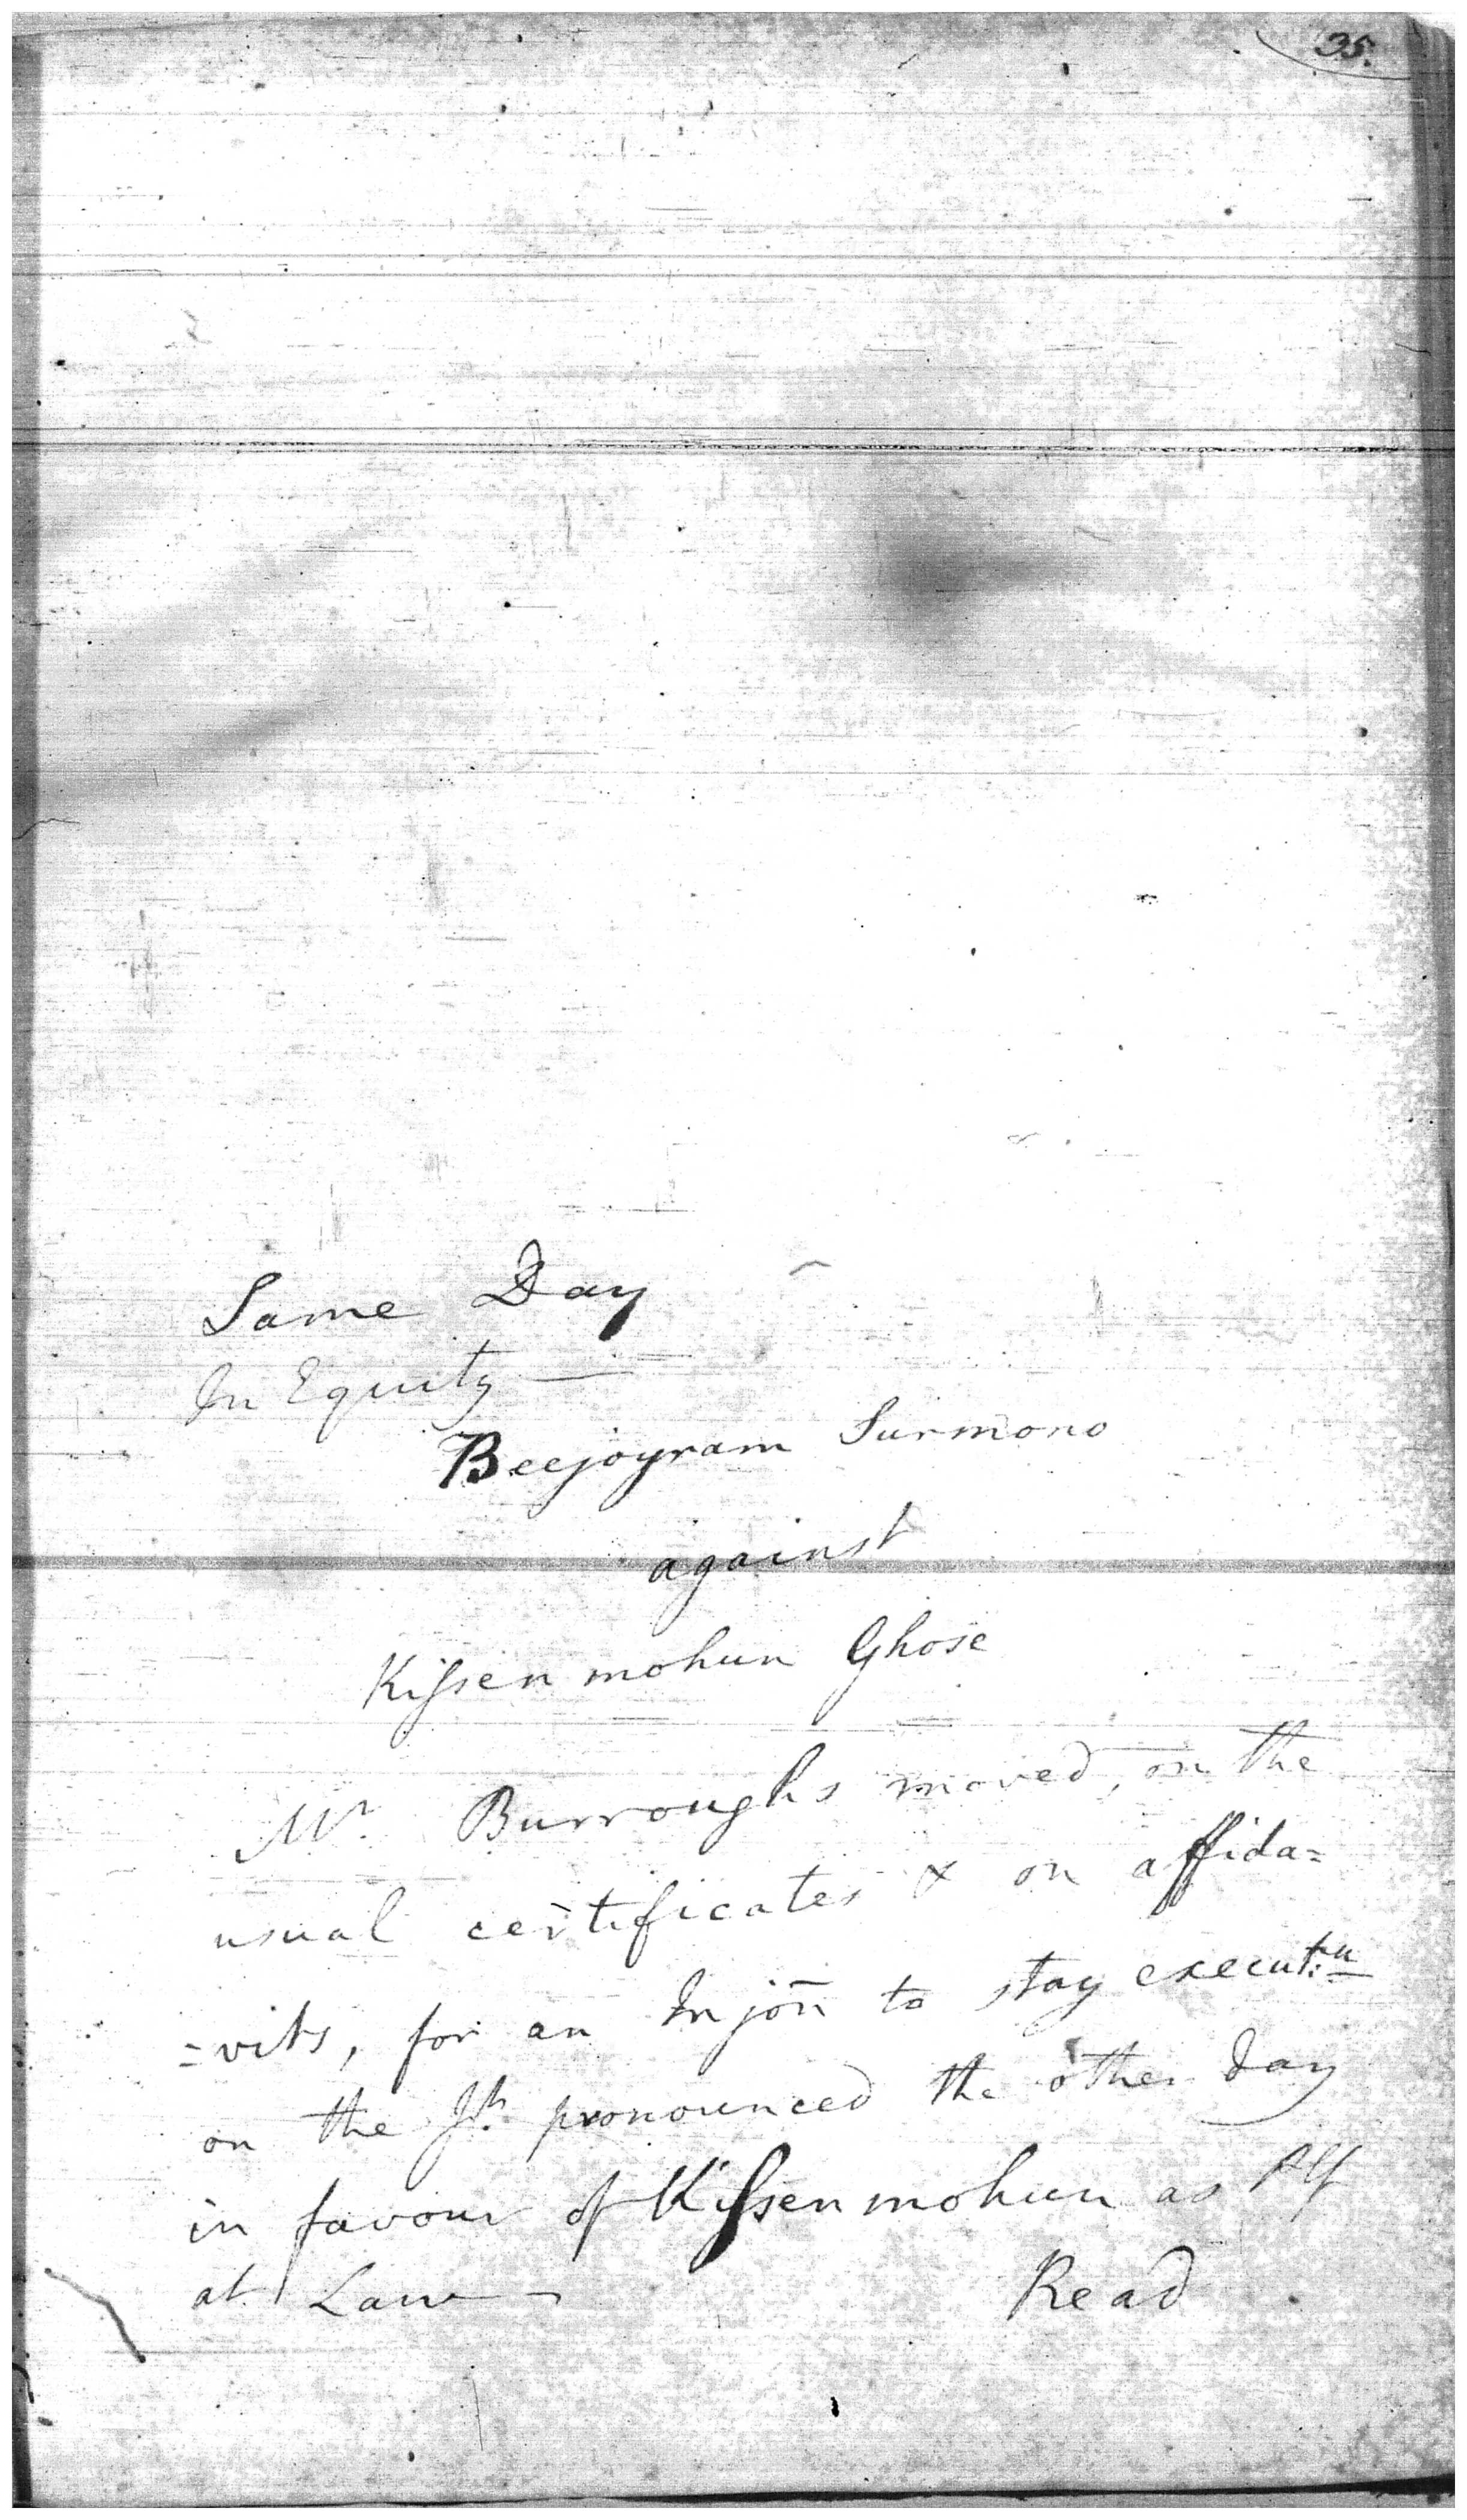 35.
Same Day
In Equity —
Beejoyram Surmono
against
Kissenmohun Ghose
Mr. Burroughs moved, on the
usual certificates & on affida=
=vits, for an Injon̄ to stay execut:n
on the Jt. pronounced the other day
in favour of Kissenmohun as Plf
at Law — Read